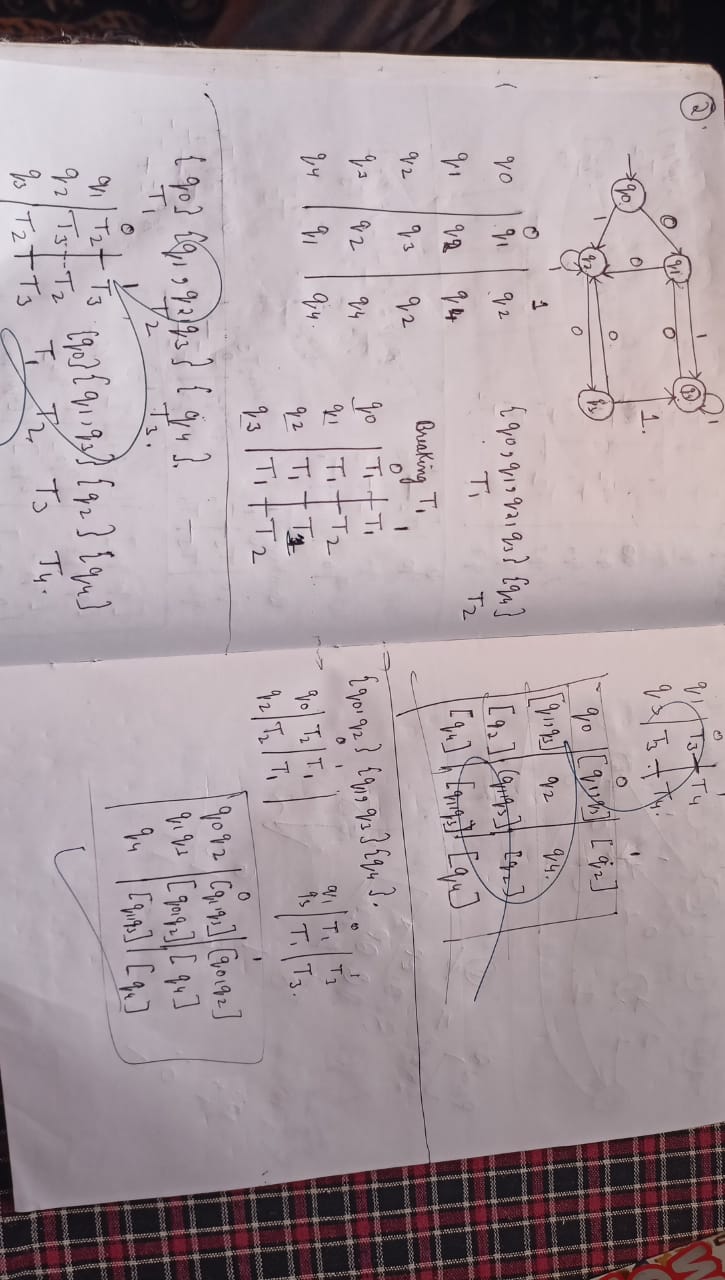 2
0 q1 1 q4 1
0
q0 0 1.
1 q2 0 q3
0
1
0 1
q0 q1 q2
q1 q2 q4
q2 q3 q2
q3 q2 q4
q4 q1 q4.
{q0, q1, q2, q3} {q4}
T1 T2
Breaking T1
0 1
q0 T1 T1
q1 T1 T2
q2 T1 T1
q3 T1 T2
{q0} {q1, q2, q3} {q4}.
T1 T2 T3.
0 1
q1 T2 T3
q2 T3 T2
q3 T2 T3
{q0} {q1, q3} {q2} {q4}
T1 T2 T3 T4.
0 1
q1 T3 T4
q3 T3 T4.
0 1
q0 [q1, q3] [q2]
[q1, q3] q2 q4.
[q2] [q1, q3] [q2]
[q4] [q1, q3] [q4]
{q0, q2} {q1, q3} {q4}.
0 1
q0 T2 T1
q2 T2 T1
0 1
q1 T1 T3
q3 T1 T3.
0 1
q0 q2 [q1, q3] [q0, q2]
q1 q3 [q0, q2] [q4]
q4 [q1, q3] [q4]